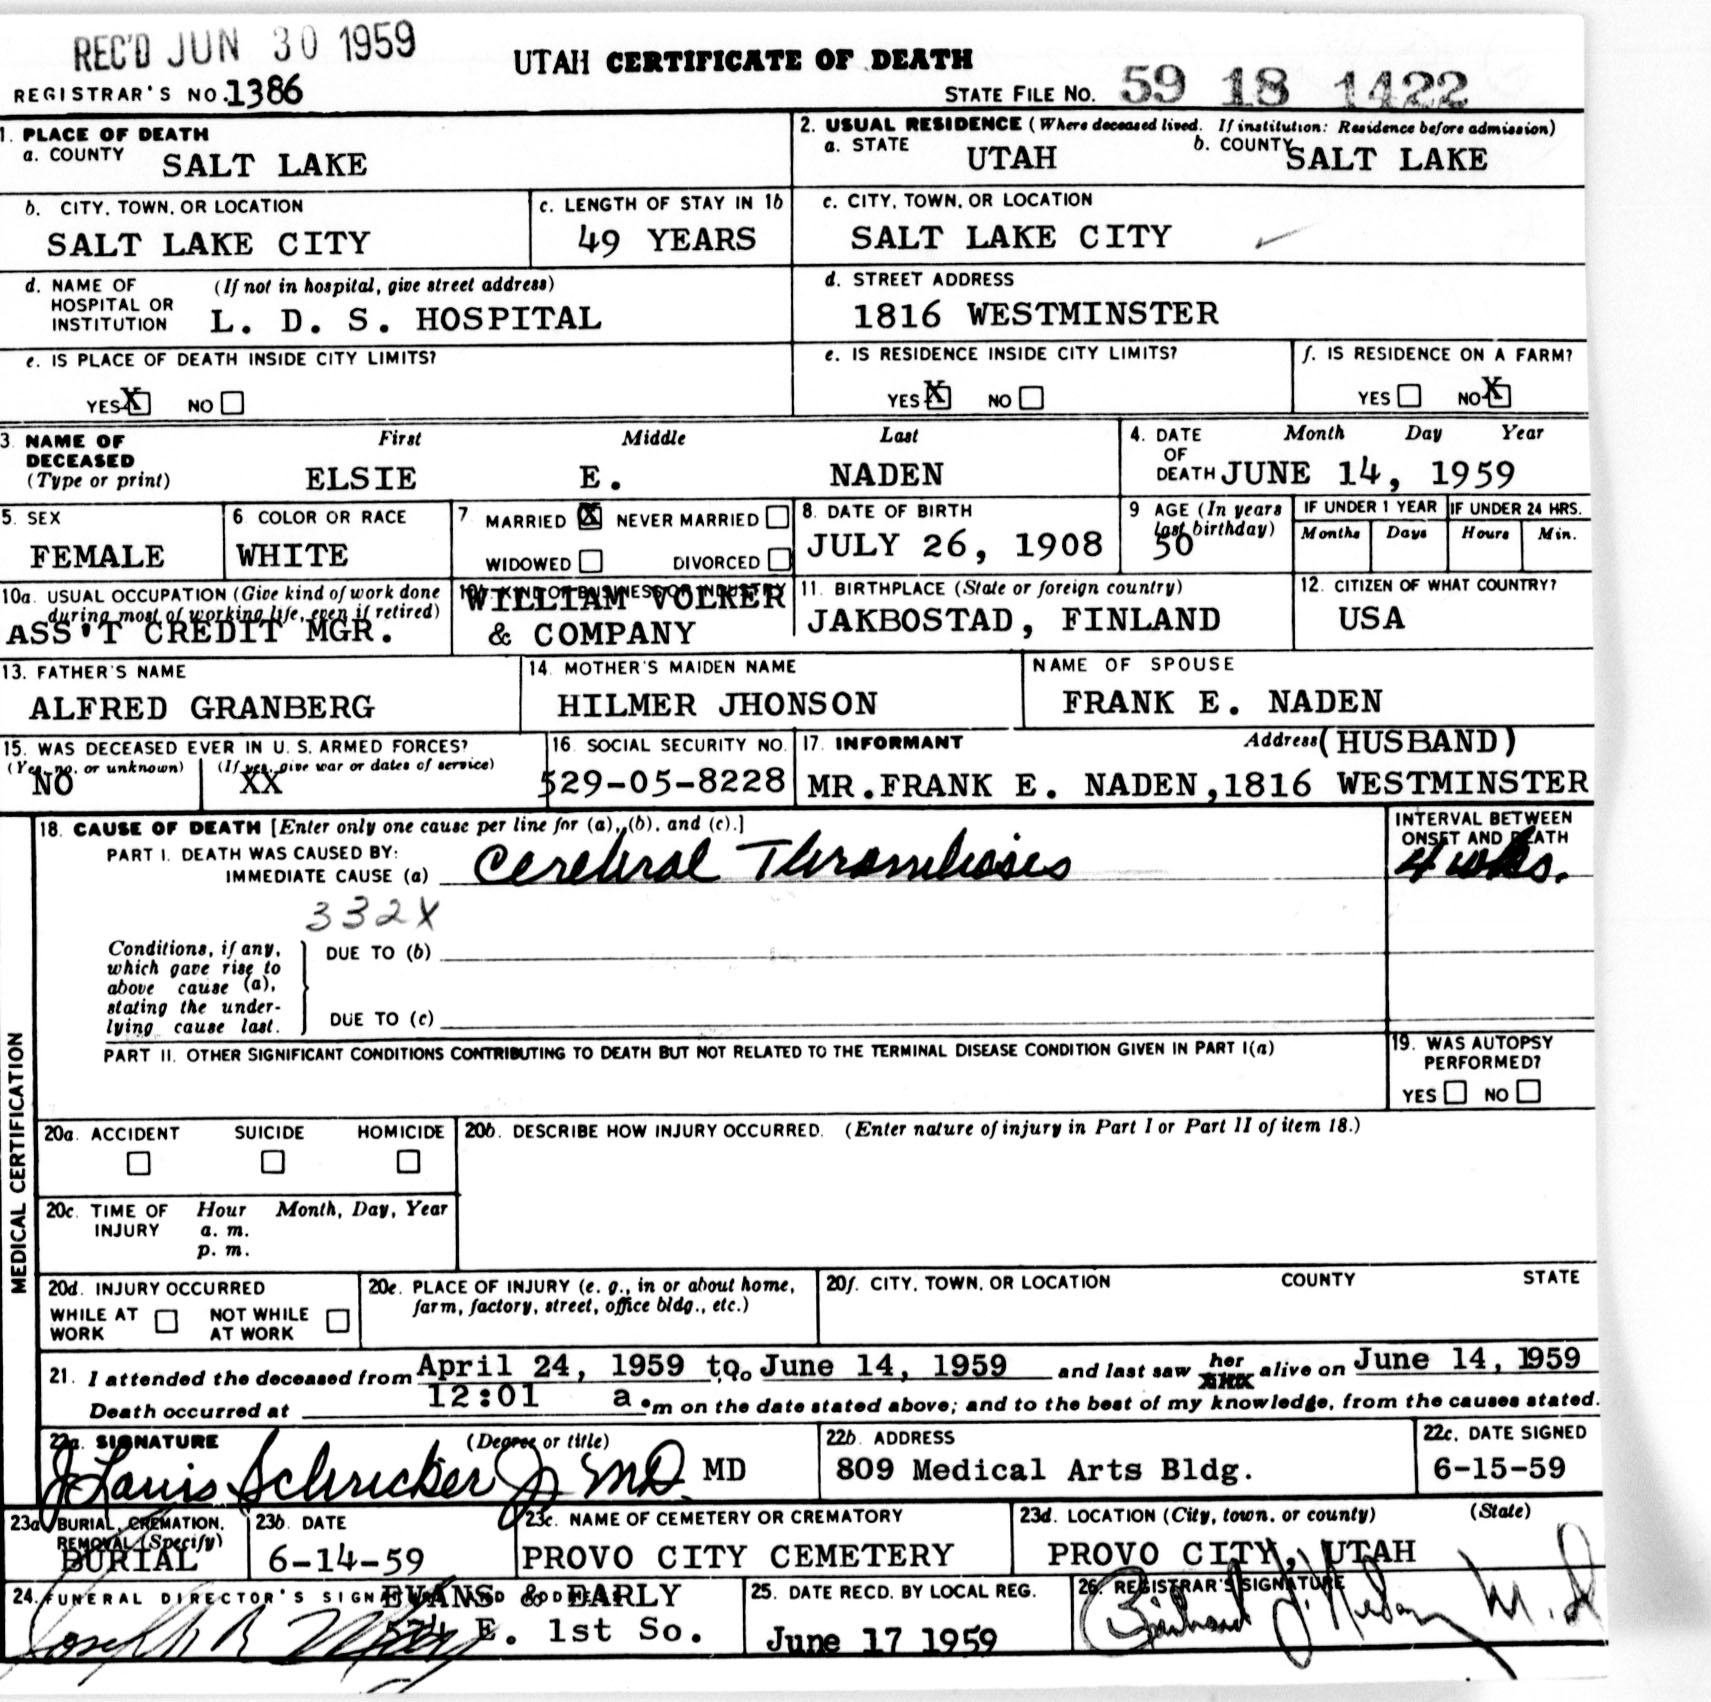 REC'D JUN 30 1959
UTAH CERTIFICATE OF DEATH
REGISTRAR'S NO. 1386
STATE FILE NO. 59 18 1422
1. PLACE OF DEATH
a. COUNTY SALT LAKE
2. USUAL RESIDENCE (Where deceased lived. If institution: Residence before admission)
a. STATE UTAH b. COUNTY SALT LAKE
b. CITY, TOWN, OR LOCATION
SALT LAKE CITY
c. LENGTH OF STAY IN 1b
49 YEARS
c. CITY, TOWN, OR LOCATION
SALT LAKE CITY
d. NAME OF HOSPITAL OR INSTITUTION (If not in hospital, give street address)
L. D. S. HOSPITAL
d. STREET ADDRESS
1816 WESTMINSTER
e. IS PLACE OF DEATH INSIDE CITY LIMITS?
YES X NO
e. IS RESIDENCE INSIDE CITY LIMITS?
YES X NO
f. IS RESIDENCE ON A FARM?
YES NO X
3 NAME OF DECEASED (Type or print)
First Middle Last
ELSIE E. NADEN
4. DATE OF DEATH Month Day Year
JUNE 14, 1959
5. SEX
FEMALE
6 COLOR OR RACE
WHITE
7 MARRIED X NEVER MARRIED
WIDOWED DIVORCED
8. DATE OF BIRTH
JULY 26, 1908
9 AGE (In years last birthday)
50
IF UNDER 1 YEAR IF UNDER 24 HRS.
Months Days Hours Min.
10a. USUAL OCCUPATION (Give kind of work done during most of working life, even if retired)
ASS'T CREDIT MGR.
10b. KIND OF BUSINESS OR INDUSTRY
WILLIAM VOLKER
& COMPANY
11. BIRTHPLACE (State or foreign country)
JAKBOSTAD, FINLAND
12. CITIZEN OF WHAT COUNTRY?
USA
13. FATHER'S NAME
ALFRED GRANBERG
14. MOTHER'S MAIDEN NAME
HILMER JHONSON
NAME OF SPOUSE
FRANK E. NADEN
15. WAS DECEASED EVER IN U. S. ARMED FORCES?
(Yes, no, or unknown) (If yes, give war or dates of service)
NO XX
16. SOCIAL SECURITY NO.
529-05-8228
17. INFORMANT Address (HUSBAND)
MR.FRANK E. NADEN,1816 WESTMINSTER
MEDICAL CERTIFICATION
18. CAUSE OF DEATH [Enter only one cause per line for (a), (b), and (c).]
PART I. DEATH WAS CAUSED BY:
IMMEDIATE CAUSE (a) Cerebral Thrombosis
INTERVAL BETWEEN ONSET AND DEATH
4 wks.
332X
Conditions, if any, which gave rise to above cause (a), stating the underlying cause last.
DUE TO (b)
DUE TO (c)
PART II. OTHER SIGNIFICANT CONDITIONS CONTRIBUTING TO DEATH BUT NOT RELATED TO THE TERMINAL DISEASE CONDITION GIVEN IN PART I(a)
19. WAS AUTOPSY PERFORMED?
YES NO
20a. ACCIDENT SUICIDE HOMICIDE
20b. DESCRIBE HOW INJURY OCCURRED. (Enter nature of injury in Part I or Part II of item 18.)
20c. TIME OF INJURY Hour Month, Day, Year
a. m.
p. m.
20d. INJURY OCCURRED
WHILE AT WORK NOT WHILE AT WORK
20e. PLACE OF INJURY (e. g., in or about home, farm, factory, street, office bldg., etc.)
20f. CITY, TOWN, OR LOCATION COUNTY STATE
21. I attended the deceased from April 24, 1959 to June 14, 1959 and last saw her alive on June 14, 1959
Death occurred at 12:01 a .m on the date stated above; and to the best of my knowledge, from the causes stated.
22a. SIGNATURE (Degree or title)
J Louis Schricker Jr MD. MD
22b. ADDRESS
809 Medical Arts Bldg.
22c. DATE SIGNED
6-15-59
23a BURIAL, CREMATION, REMOVAL (Specify)
BURIAL
23b. DATE
6-14-59
23c. NAME OF CEMETERY OR CREMATORY
PROVO CITY CEMETERY
23d. LOCATION (City, town, or county) (State)
PROVO CITY, UTAH
24. FUNERAL DIRECTOR'S SIGN
EVANS & EARLY
574 E. 1st So.
Joseph
25. DATE RECD. BY LOCAL REG.
June 17 1959
26. REGISTRAR'S SIGNATURE
M.D